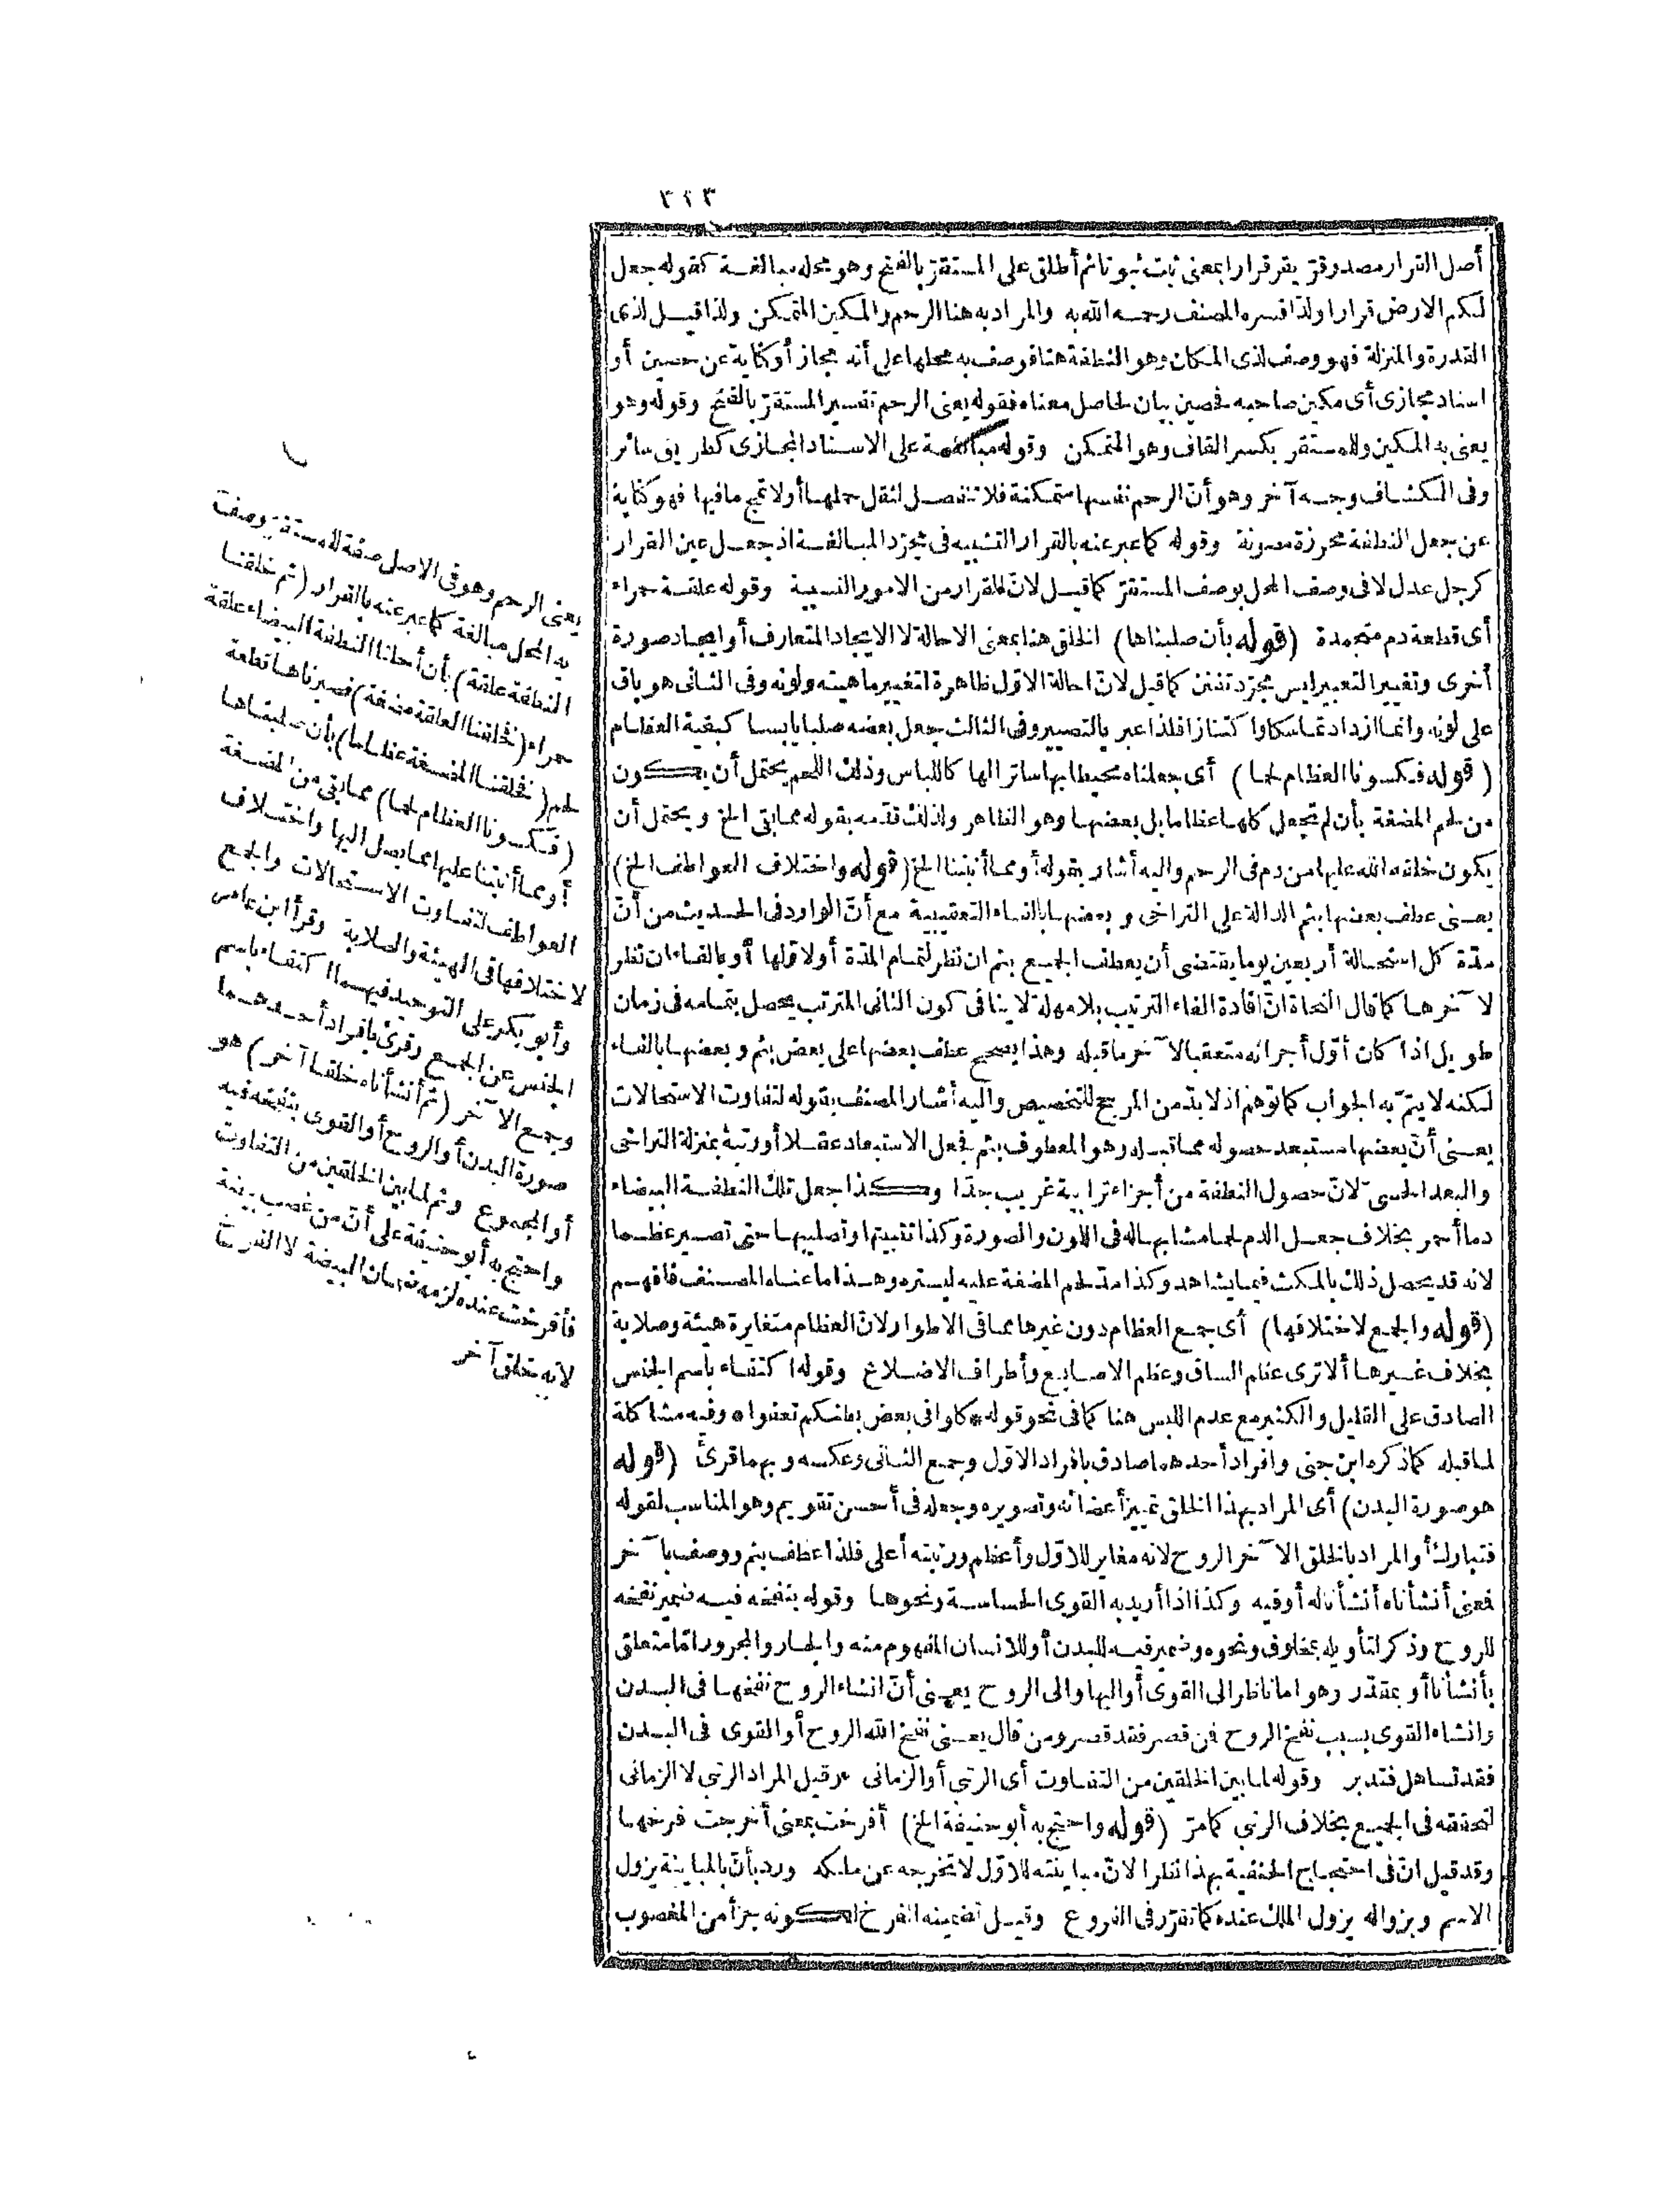 ٣٢٣
أصل القرار مصدر قرّ يقر قرارا بمعنى ثبت ثبوتا ثم أطلق على المستقرّ بالفتح وهو محله مبالغة كقوله جعل
لكم الارض قرارا ولذا فسره المصنف رحمه الله به والمراد به هنا الرحم والمكين المتمكن ولذا قيل لذى
القدرة والمنزلة فهو وصف لذى المكان وهو النطفة هنا فوصف به محلها على أنه مجاز أو كناية عن حصين أو
اسناد مجازى أى مكين صاحبه فحصين بيان لحاصل معناه فقوله يعنى الرحم تفسير المستقرّ بالفتح وقوله وهو
يعنى به المكين وللمستقر بكسر القاف وهو المتمكن وقوله مبالغة على الاسناد المجازى كطريق سائر
وفى الكشاف وجه آخر وهو أنّ الرحم نفسها متمكنة فلا تنفصل لثقل حملها أولا تمج مافيها فهو كناية
عن جعل النطفة محرزة مصونة وقوله كما عبر عنه بالقرار التشبيه فى مجرّد المبالغة اذ جعل عين القرار
كرجل عدل لا فى وصف المحل بوصف المستقرّ كما قيل لانّ القرار من الامور النسبية وقوله علقة حمراء
أى قطعة دم متجمدة (قوله بأن صلبناها) الخلق هنا بمعنى الاحالة لا الايجاد المتعارف أو ايجاد صورة
أخرى وتغيير التعبير ليس مجرّد تفنن كما قيل لانّ احالة الاوّل ظاهرة لتغيير ماهيته ولونه وفى الثانى هو باق
على لونه وانما ازداد تماسكا واكتنازا فلذا عبر بالتصيير وفى الثالث جعل بعضه صلبا يابسا كبقية العظام
(قوله فكسونا العظام لحما) أى جعلناه محيطا بها ساترا لها كاللباس وذلك اللحم يحتمل أن يكون
من لحم المضغة بأن لم تجعل كلها عظاما بل بعضها وهو الظاهر ولذلك قدّمه بقوله مما بقى الخ ويحتمل أن
يكون خلقه الله عليها من دم فى الرحم واليه أشار بقوله أو مما أنبتنا الخ (قوله واختلاف العواطف الخ)
يعنى عطف بعضها بثم الدالة على التراخى وبعضها بالفاء التعقيبية مع أنّ الوارد فى الحديث من أنّ
مدّة كل استحالة أربعين يوما يقتضى أن يعطف الجميع بثم ان نظر لتمام المدّة أو لاوّلها أو بالفاء ان نظر
لآخرها كما قال النحاة انّ افادة الفاء الترتيب بلا مهلة لا ينافى كون الثانى المترتب يحصل بتمامه فى زمان
طويل اذا كان أوّل أجزائه متعقبا لآخر ماقبله وهذا يصحح عطف بعضها على بعض بثم وبعضها بالفاء
لكنه لا يتمّ به الجواب كما توهم اذ لا بدّ من المرجح للتخصيص واليه أشار المصنف بقوله لتفاوت الاستحالات
يعنى أنّ بعضها مستبعد حصوله مما قبله وهو المعطوف بثم فجعل الاستبعاد عقلا أو رتبة بمنزلة التراخى
والبعد الحسىّ لانّ حصول النطفة من أجزاء ترابية غريب جدّا وكذا جعل تلك النطفة البيضاء
دما أحمر بخلاف جعل الدم لحما مشابها له فى اللون والصورة وكذا تثبيتها وتصليبها حتى تصير عظما
لانه قد يحصل ذلك بالمكث فيما يشاهد وكذا مدّ لحم المضغة عليه ليستره وهذا ما عناه المصنف فافهم
(قوله والجمع لاختلافها) أى جمع العظام دون غيرها مما فى الاطوار لانّ العظام متغايرة هيئة وصلابة
بخلاف غيرها ألا ترى عظام الساق وعظم الاصابع وأطراف الاضلاع وقوله اكتفاء باسم الجنس
الصادق على القليل والكثير مع عدم اللبس هنا كما فى نحو قوله * كلوا فى بعض بطنكم تعفوا * وفيه مشاكلة
لما قبله كما ذكره ابن جنى وافراد أحدهما صادق بافراد الاوّل وجمع الثانى وعكسه وبهما قرئ (قوله
هو صورة البدن) أى المراد بهذا الخلق تمييز أعضائه وتصويره وجعله فى أحسن تقويم وهو المناسب لقوله
فتبارك أو المراد بالخلق الآخر الروح لانه مغاير للاوّل وأعظم ورتبته أعلى فلذا عطف بثم ووصف بآخر
فعنى أنشأناه أنشأنا له أو فيه وكذا اذا أريد به القوى الحساسة ونحوها وقوله بنفخه فيه ضمير نفخه
للروح وذكر لتأويله بمخلوق ونحوه وضمير فيه للبدن أو للانسان المفهوم منه والجار والمجرور امّا متعلق
بأنشأنا أو بمقدّر وهو اما ناظر الى القوى أو اليها والى الروح يعنى أنّ انشاء الروح نفخها فى البدن
وانشاء القوى بسبب نفخ الروح فن قصر فقد قصر ومن قال يعنى نفخ الله الروح أو القوى فى البدن
فقد تساهل فتدبر وقوله لما بين الخلقين من التفاوت أى الرتبى أو الزمانى وقيل المراد الرتبى لا الزمانى
لتحققه فى الجميع بخلاف الرتبى كما مرّ (قوله واحتج به أبو حنيفة الخ) أفرخت بمعنى أخرجت فرخها
وقد قيل انّ فى احتجاج الحنفية بهذا نظرا لانّ مباينته للاوّل لا تخرجه عن ملكه ورد بأنّ بالمباينة يزول
الاسم وبزواله يزول الملك عنده كما تقرّر فى الفروع وقيل تضمينه الفرخ لكونه جزأ من المغصوب
يعنى الرحم وهو فى الاصل صفة للمستقرّ وصف
به المحل مبالغة كما عبر عنه بالقرار (ثم خلقنا
النطفة علقة) بأن أحلنا النطفة البيضاء علقة
حمراء (فخلقنا العلقة مضغة) فصيرناها قطعة
لحم (فخلقنا المضغة عظاما) بأن صلبناها
(فكسونا العظام لحما) مما بقى من المضغة
أو مما أنبتنا عليها مما يصل اليها واختلاف
العواطف لتفاوت الاستحالات والجمع
لاختلافها فى الهيئة والصلابة وقرأ ابن عامر
وأبو بكر على التوحيد فيهما اكتفاء باسم
الجنس عن الجمع وقرئ بافراد أحدهما
وجمع الآخر (ثم أنشأناه خلقا آخر) هو
صورة البدن أو الروح أو القوى بنفخه فيه
أو المجموع وثم لما بين الخلقين من التفاوت
واحتج به أبو حنيفة على أنّ من غصب بيضة
فأفرخت عنده لزمه ضمان البيضة لا الفرخ
لانه خلق آخر